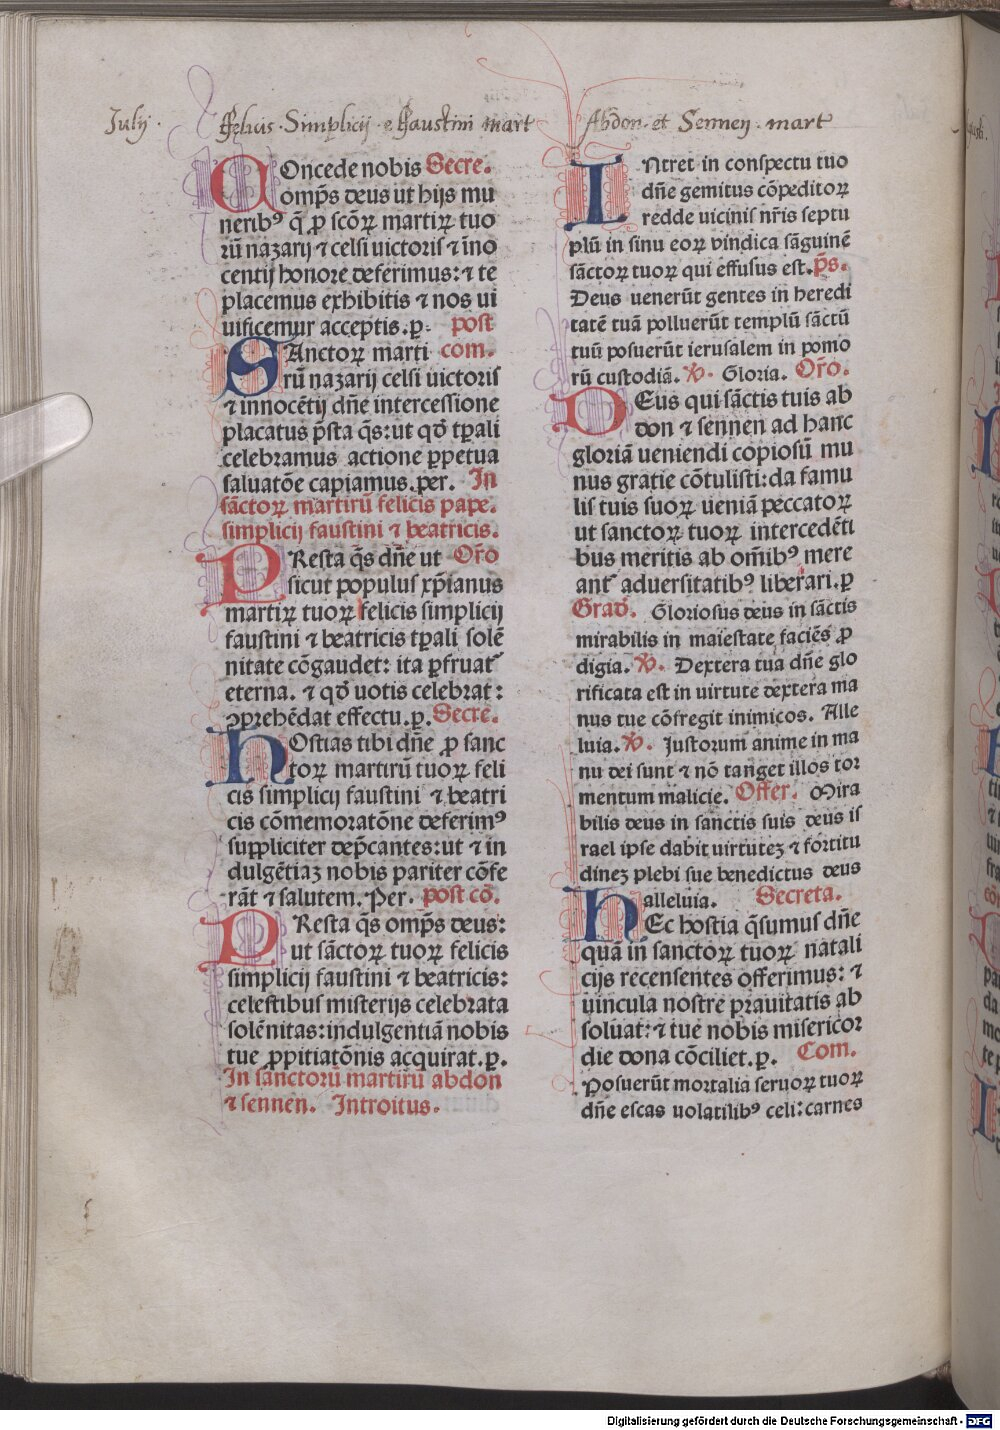 Julij · Felicis · Simplicij · e Faustini mart Abdon · et Sennen · mart
COncede nobis Secre.
omp̄s deus ut hijs mu
nerib⁹ q̄ ꝓ scōꝝ martiꝝ tuo
rū nazarij ⁊ celsi uictoris ⁊ īno
centij honore deferimus: ⁊ te
placemus exhibitis ⁊ nos ui
uificemur acceptis. ꝑ. post
SAnctoꝝ marti com.
rū nazarij celsi uictoris
⁊ innocētij dn̄e intercessione
placatus p̄sta q̄s: ut qd̄ tꝑali
celebramus actione ꝑpetua
saluatōe capiamus. per. In
sāctoꝝ martirū felicis pape.
simplicij faustini ⁊ beatricis.
PResta q̄s dn̄e ut Or̄o
sicut populus xp̄ianus
martiꝝ tuoꝝ felicis simplicij
faustini ⁊ beatricis tꝑali solē
nitate cōgaudet: ita ꝑfruat᷑
eterna. ⁊ qd̄ uotis celebrat:
ꝯprehēdat effectu. ꝑ. Secre.
HOstias tibi dn̄e ꝓ sanc
toꝝ martirū tuoꝝ feli
cis simplicij faustini ⁊ beatri
cis cōmemoratōne deferim⁹
suppliciter dep̄cantes: ut ⁊ in
dulgētiaꝫ nobis pariter cōfe
rāt ⁊ salutem. Per. post cō.
PResta q̄s omp̄s deus:
ut sāctoꝝ tuoꝝ felicis
simplicij faustini ⁊ beatricis:
celestibus misterijs celebrata
solēnitas: indulgentiā nobis
tue ꝓpitiatōnis acquirat. ꝑ.
In sanctorū martirū abdon
⁊ sennen. Introitus.
INtret in conspectu tuo
dn̄e gemitus cōpeditoꝝ
redde uicinis nr̄is septu
plū in sinu eoꝝ vindica sāguinē
sāctoꝝ tuoꝝ qui effusus est. p̄s.
Deus uenerūt gentes in heredi
tatē tuā polluerūt templū sāctū
tuū posuerūt ierusalem in pomo
rū custodiā. ꝟ. Gloria. Or̄o.
DEus qui sāctis tuis ab
don ⁊ sennen ad hanc
gloriā ueniendi copiosū mu
nus gratie cōtulisti: da famu
lis tuis suoꝝ ueniā peccatoꝝ
ut sanctoꝝ tuoꝝ intercedēti
bus meritis ab om̄ib⁹ mere
ant᷑ aduersitatib⁹ liberari. ꝑ
Grad̄. Gloriosus deus in sāctis
mirabilis in maiestate faciēs ꝓ
digia. ꝟ. Dextera tua dn̄e glo
rificata est in uirtute dextera ma
nus tue cōfregit inimicos. Alle
luia. ꝟ. Justorum anime in ma
nu dei sunt ⁊ nō tanget illos tor
mentum malicie. Offer. Mira
bilis deus in sanctis suis deus is
rael ipse dabit uirtuteꝫ ⁊ fortitu
dineꝫ plebi sue benedictus deus
alleluia. Secreta.
HEc hostia q̄sumus dn̄e
quā in sanctoꝝ tuoꝝ natali
cijs recensentes offerimus: ⁊
uincula nostre prauitatis ab
soluat: ⁊ tue nobis misericor
die dona cōciliet. ꝑ. Com.
Posuerūt mortalia seruoꝝ tuoꝝ
dn̄e escas uolatilib⁹ celi: carnes
Digitalisierung gefördert durch die Deutsche Forschungsgemeinschaft - DFG